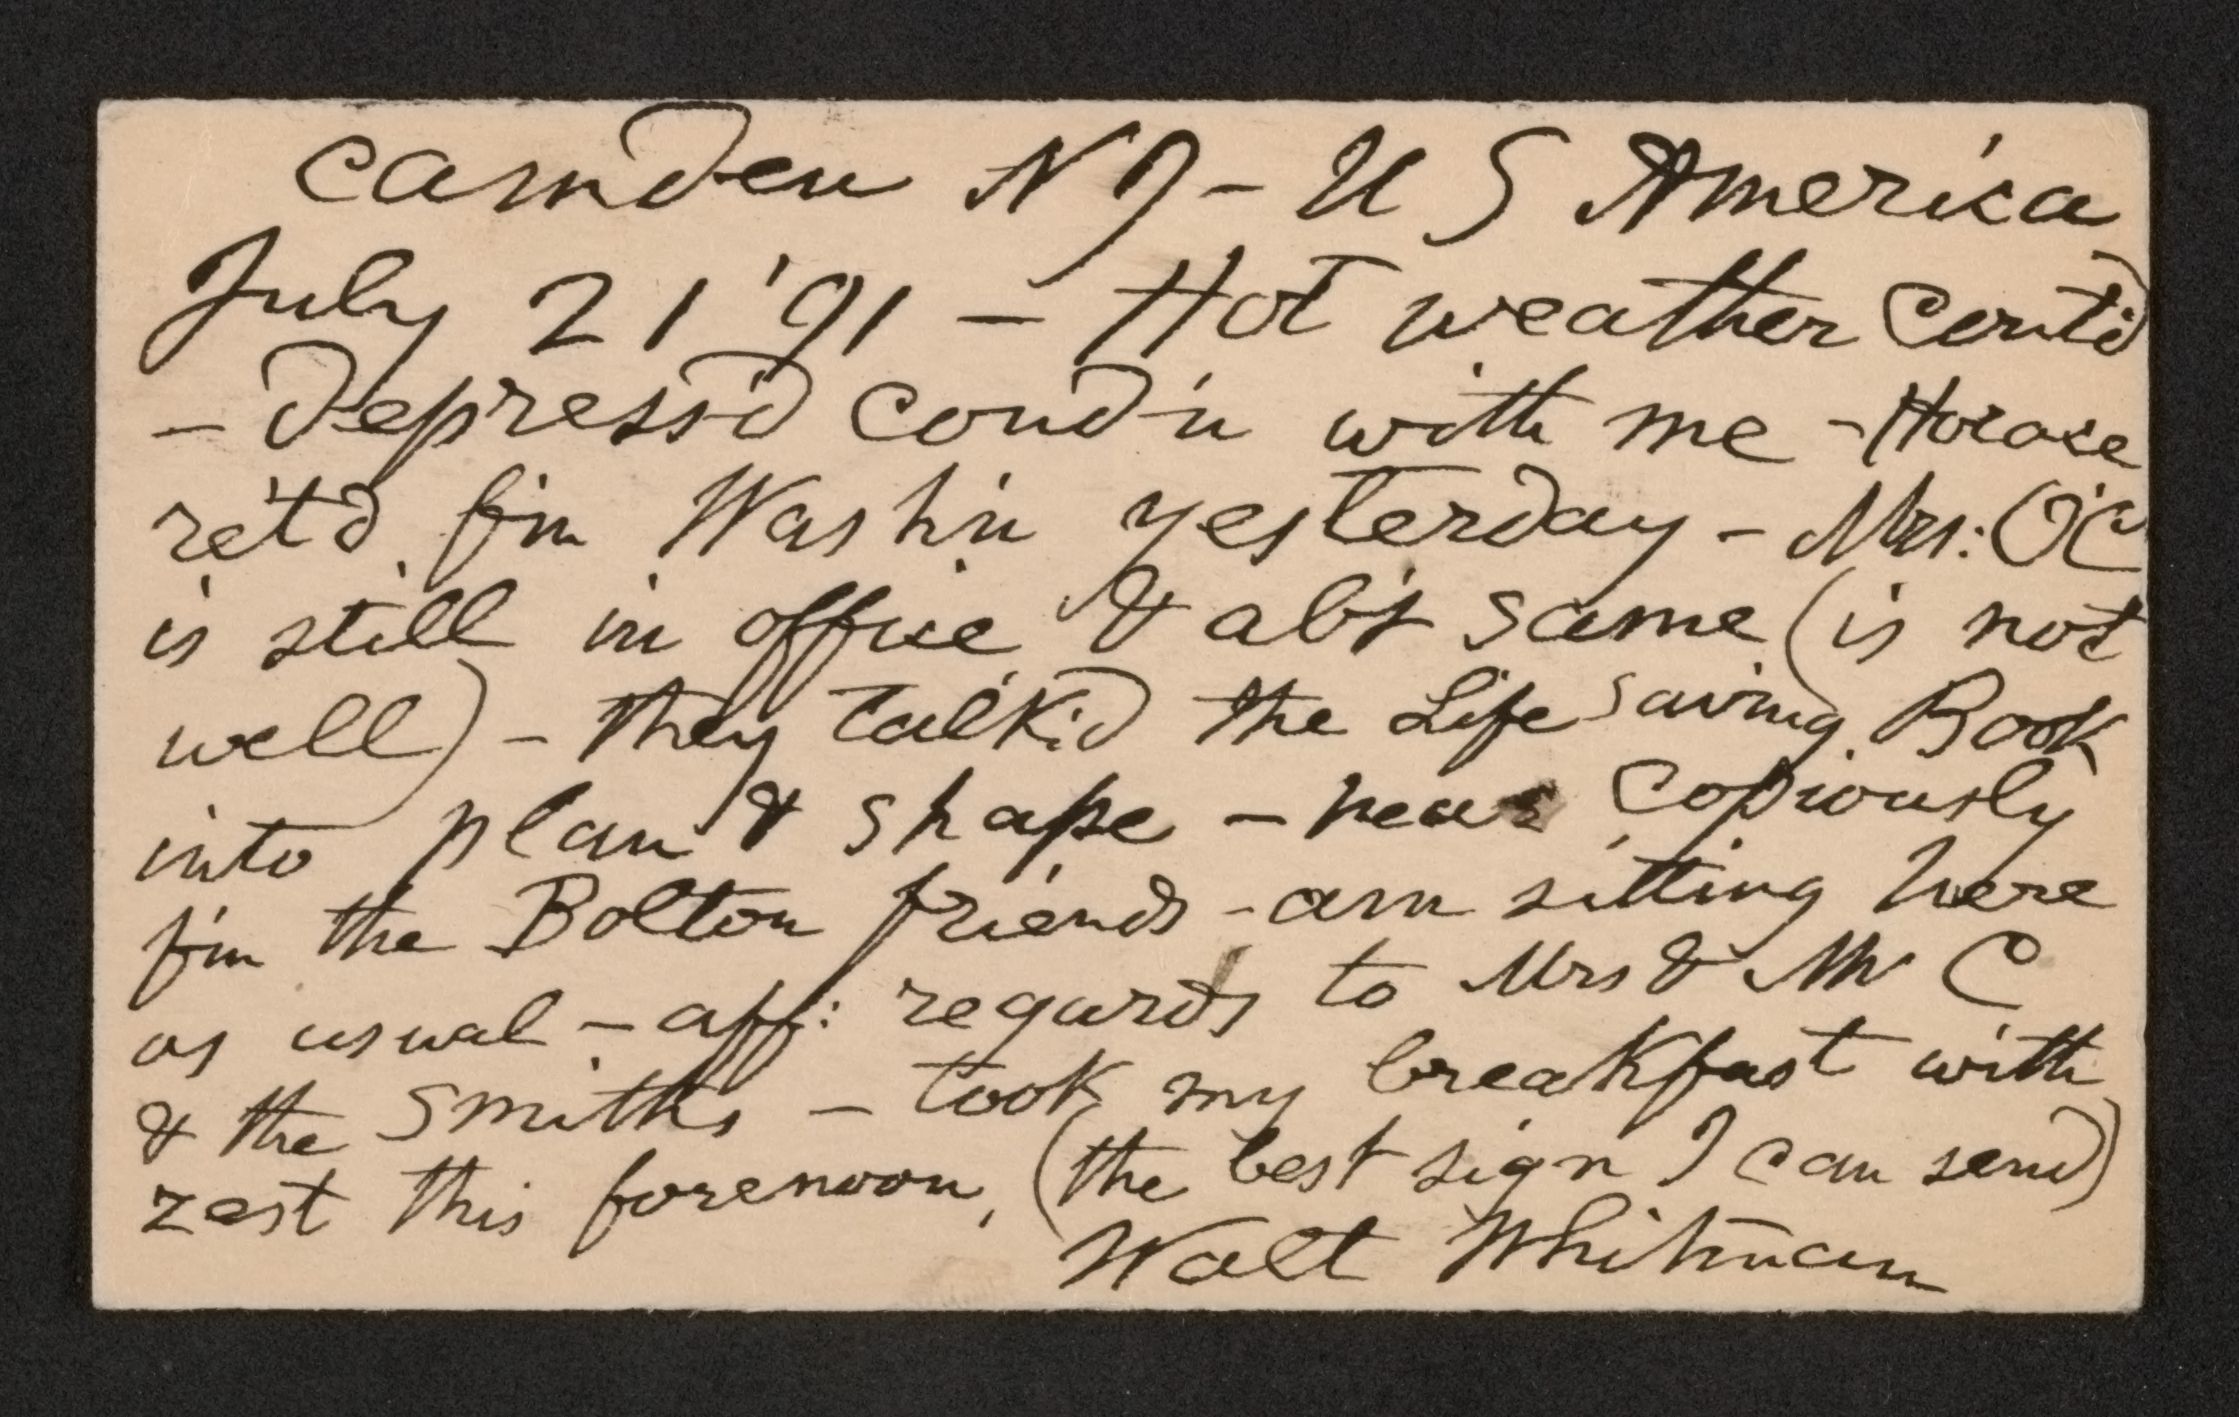 Camden N J - U S America
July 21 '91 - Hot weather cont'd
- depress'd cond'n with me - Horace
ret'd f'm Wash'n yesterday - Mrs: O'C
is still in office & ab't same (is not
well) - they talk'd the Life Saving Book
into plan & shape - hear copiously
f'm the Bolton friends - am sitting here
as usual - aff: regards to Mrs & Mr C
& the Smiths - took my breakfast with
zest this forenoon, (the best sign I can send)
Walt Whitman